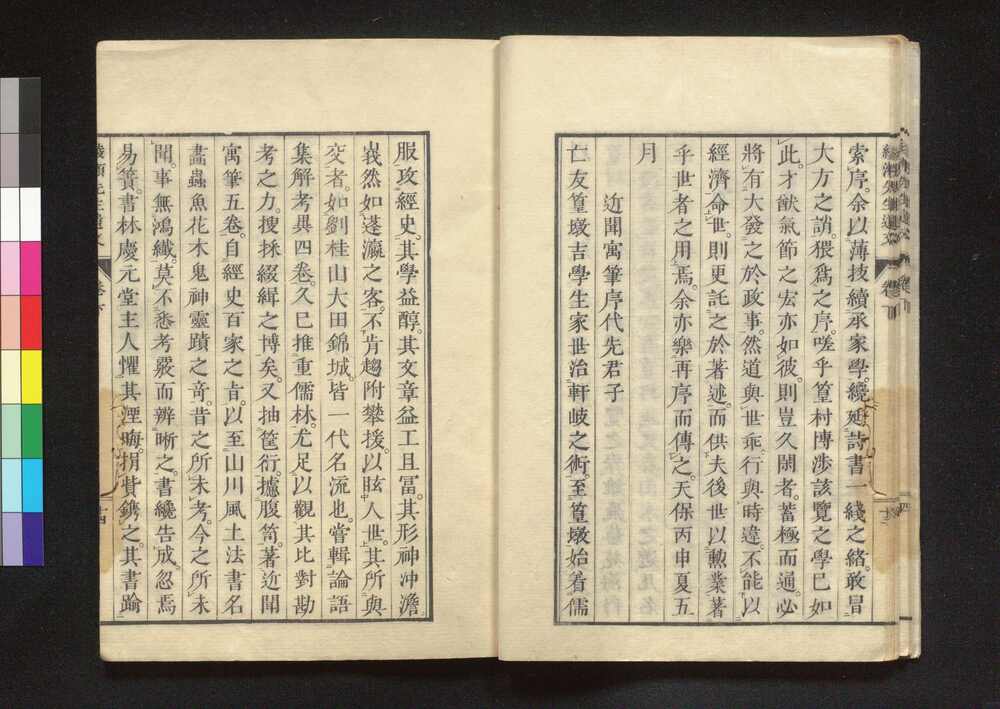 索序。余以薄技續承家學。纔延詩書一綫之緒。敢冒
大方之誚。猥爲之序。嗟乎篁村博渉該覽之學已如
此。才猷氣節之宏亦如彼。則豈久閟者。蓄極而通。必
將有大發之於政事。然道與世乖。行與時違。不能以
經濟命世。則更託之於著述。而供夫後世以勲業著
乎世者之用焉。余亦樂再序而傳之。天保丙申夏五
月
近聞寓筆序代先君子
亡友篁墩吉學生家世治軒岐之術。至篁墩始着儒
服攻經史。其學益醇。其文章益工且冨。其形神冲澹
峩然如蓬瀛之客。不肯趨附攀援。以眩人世。其所與
交者。如劉桂山大田錦城。皆一代名流也。嘗輯論語
集解考異四卷。久已推重儒林。尤足以觀其比對勘
考之力。搜採綴緝之博矣。又抽筐衍。攄腹笥。著近聞
寓筆五卷。自經史百家之言。以至山川風土法書名
畵蟲魚花木鬼神靈蹟之奇。昔之所未考。今之所未
聞。事無鴻纖。莫不悉考覈而辨晰之。書纔告成。忽焉
易簀。書林慶元堂主人懼其湮晦。捐貲鐫之。其書踰